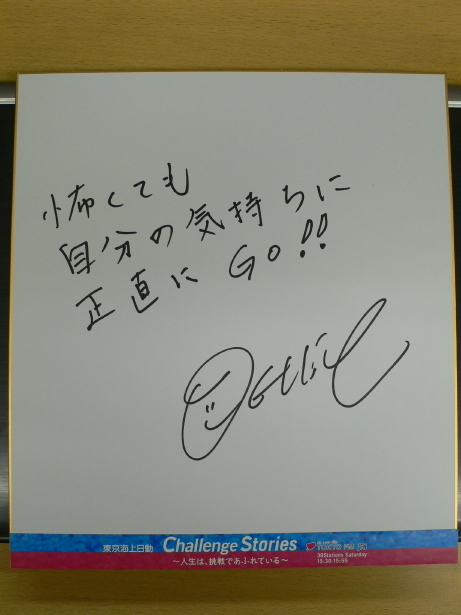 怖くても
自分の気持ちに
正直に GO!!
東京海上日動 Challenge Stories TOKYO FM
38Stations Saturday
15:30-15:55
～人生は、挑戦であふれている～